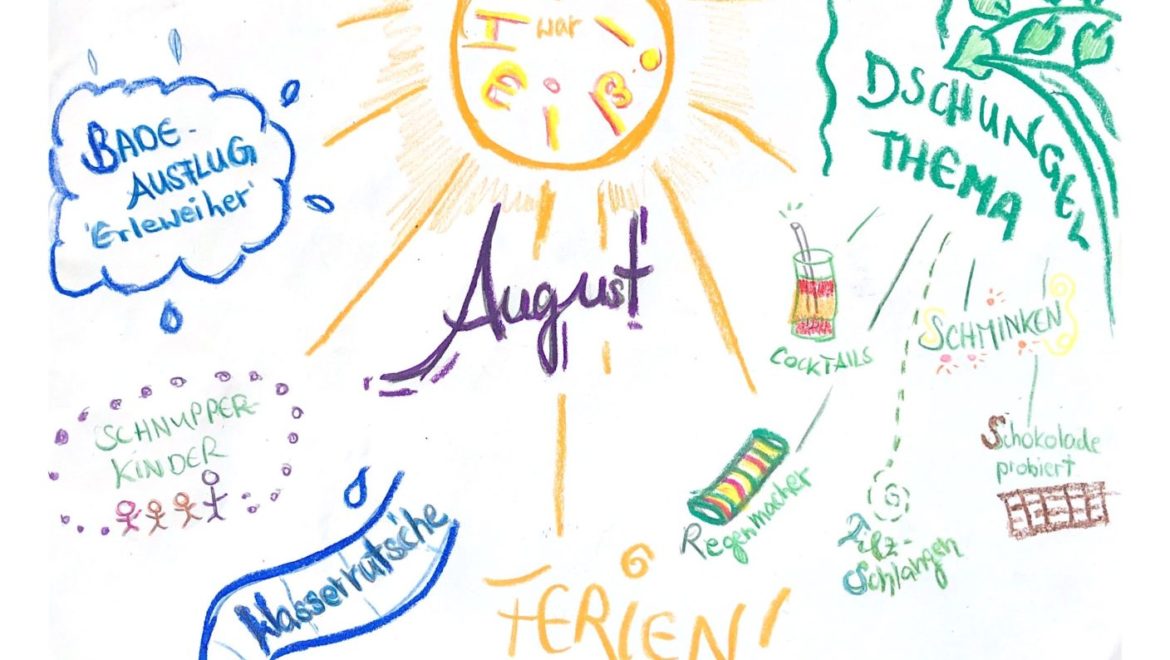 war
Heiß!
BADE-
AUSFLUG
'Erleweiher'
DSCHUNGEL
THEMA
August
COCKTAILS
SCHMINKEN
SCHNUPPER-
KINDER
Schokolade
probiert
Wasserrutsche
Regenmacher
Filz-
Schlangen
FERIEN!